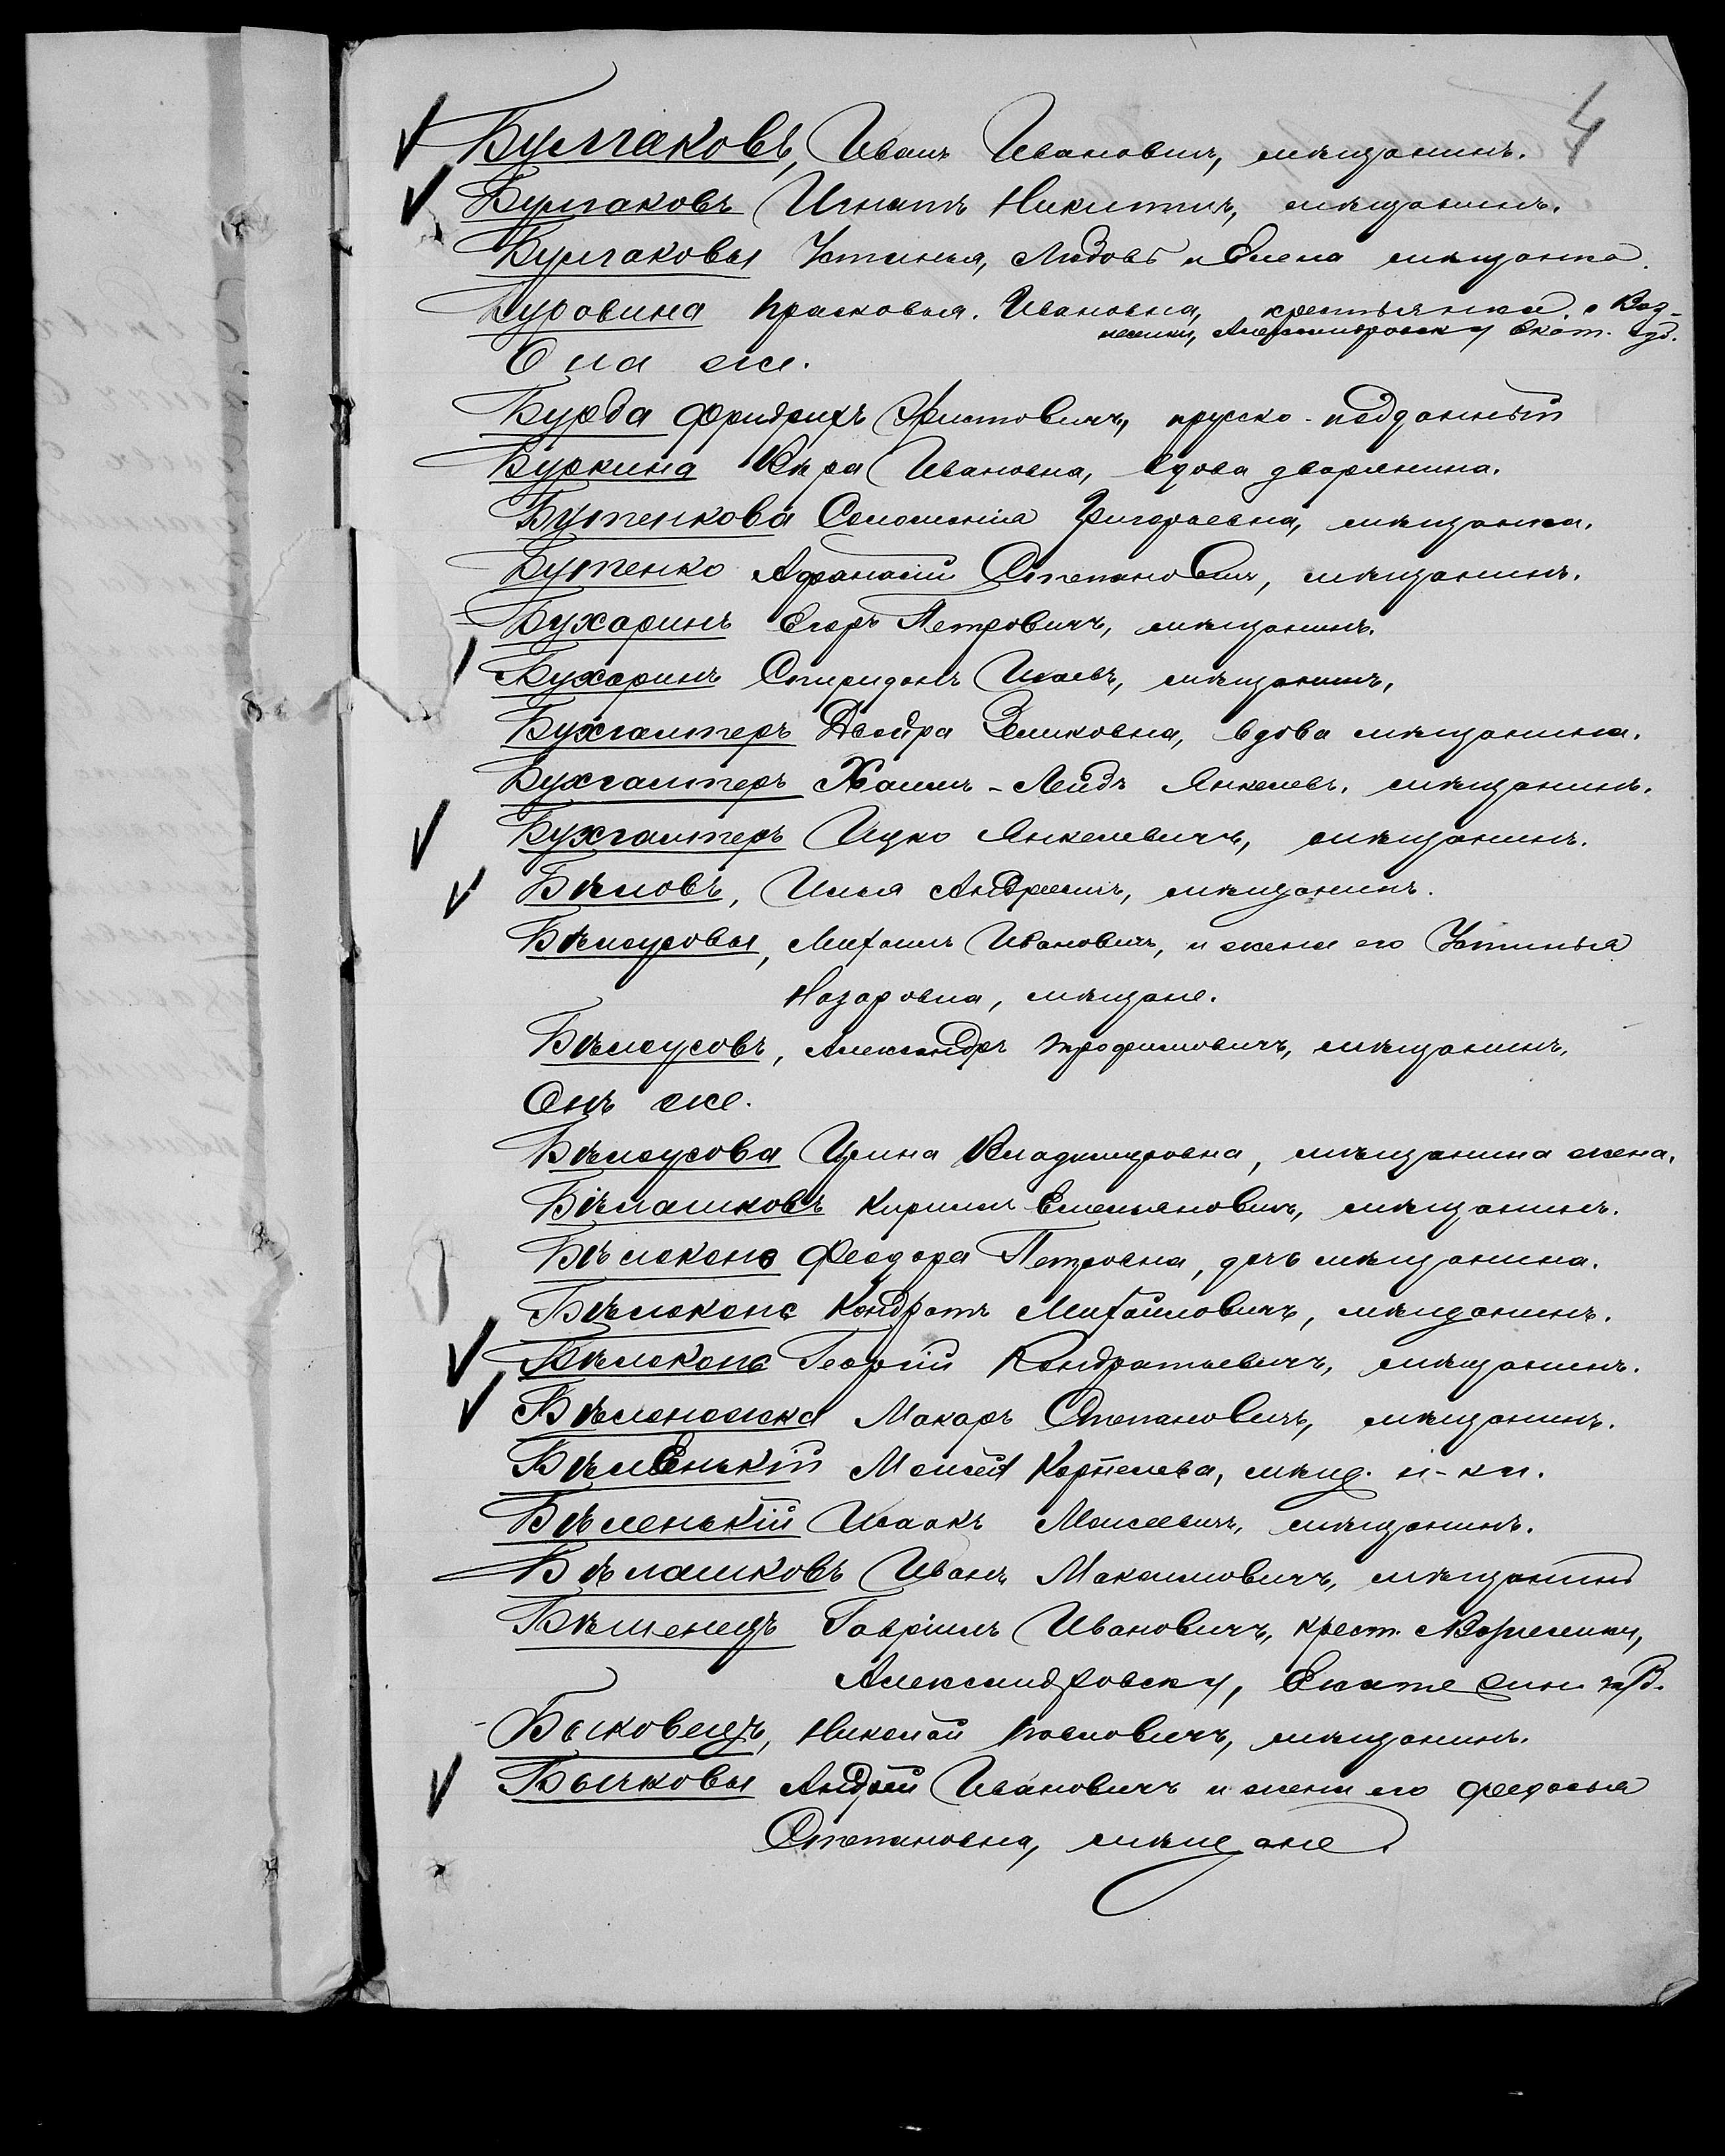 4
Булгаковъ, Иванъ Ивановичъ, мѣщанинъ.
Булгаковъ Игнатъ Никитичъ, мѣщанинъ.
Булгаковы Устинья, Любовь и Елена мѣщанка.
Буровина Прасковья Ивановна, крестьянка с Воз-
несенки, Александровск у Екат. губ.
Она же.
Бурда Фридрихъ Христовичъ, прусско-подданный
Буркина Вѣра Ивановна, вдова дворянина.
Бутенкова Соломонія Григорьевна, мѣщанка.
Бутенко Афанасій Степановичъ, мѣщанинъ.
Бухаринъ Егоръ Петровичъ, мѣщанинъ.
Бухаринъ Спиридонъ Исаевъ, мѣщанинъ,
Бухгалтеръ Двойра Зеликовна, вдова мѣщанина.
Бухгалтеръ Хаимъ-Лейбъ Янкелевъ, мѣщанинъ.
Бухгалтеръ Ицко Янкелевичъ, мѣщанинъ.
Бѣловъ, Илья Андреичъ, мѣщанинъ.
Бѣлоусовы, Михаилъ Ивановичъ, и жена его Устинья
Назаровна, мѣщане.
Бѣлоусовъ, Александръ Трофимовичъ, мѣщанинъ,
Онъ же.
Бѣлоусова Ирина Владимировна, мѣщанина жена.
Бѣлашковъ Кириллъ Емельяновичъ, мѣщанинъ.
Бѣлоконь Феодора Петровна, дочь мѣщанина.
Бѣлоконь Кондратъ Михайловичъ, мѣщанинъ.
Бѣлоконь Георгій Кондратьевичъ, мѣщанинъ.
Бѣлоножка Макаръ Степановичъ, мѣщанинъ.
Бѣленькій Моисей Корнелева, мѣщ. н-ки.
Бѣленькій Исаакъ Моисеевичъ, мѣщанинъ.
Бѣлашковъ Иванъ Максимовичъ, мѣщанинъ
Бѣшенецъ Гавріилъ Ивановичъ, крест.
Александровск у,
Быковецъ, Николай Павловичъ, мѣщанинъ.
Бычковы Андрей Ивановичъ и жена его Федосья
Степановна, мѣщане.